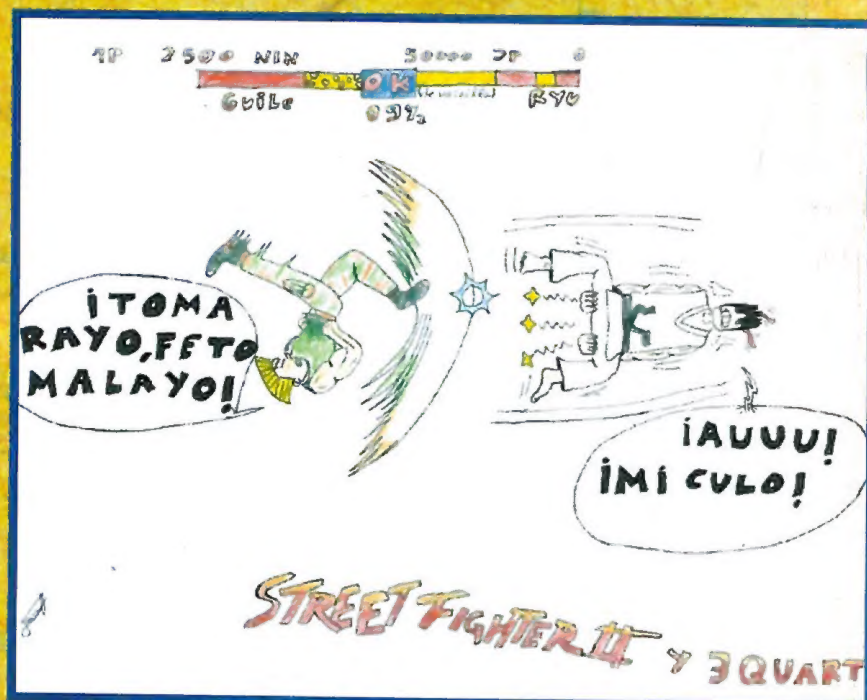 1P 2500 NIN 50000 2P 0
OK
GUILE 09% RYU
¡TOMA
RAYO, FETO
MALAYO!
¡AUUU!
¡MI CULO!
STREET FIGHTER II Y 3 QUART